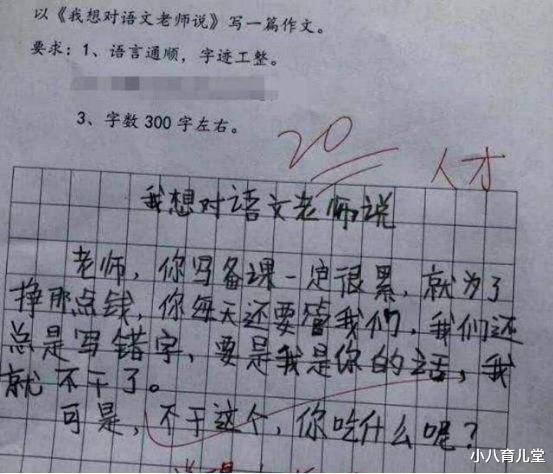 以《我想对语文老师说》写一篇作文。
要求：1、语言通顺，字迹工整。
3、字数300字左右。
20
人才
我想对语文老师说
老师，你写备课一定很累，就为了
挣那点钱，你每天还要管我们，我们还
总是写错字，要是我是你的话，我
就不干了。
可是，不干这个，你吃什么呢？
小八育儿堂